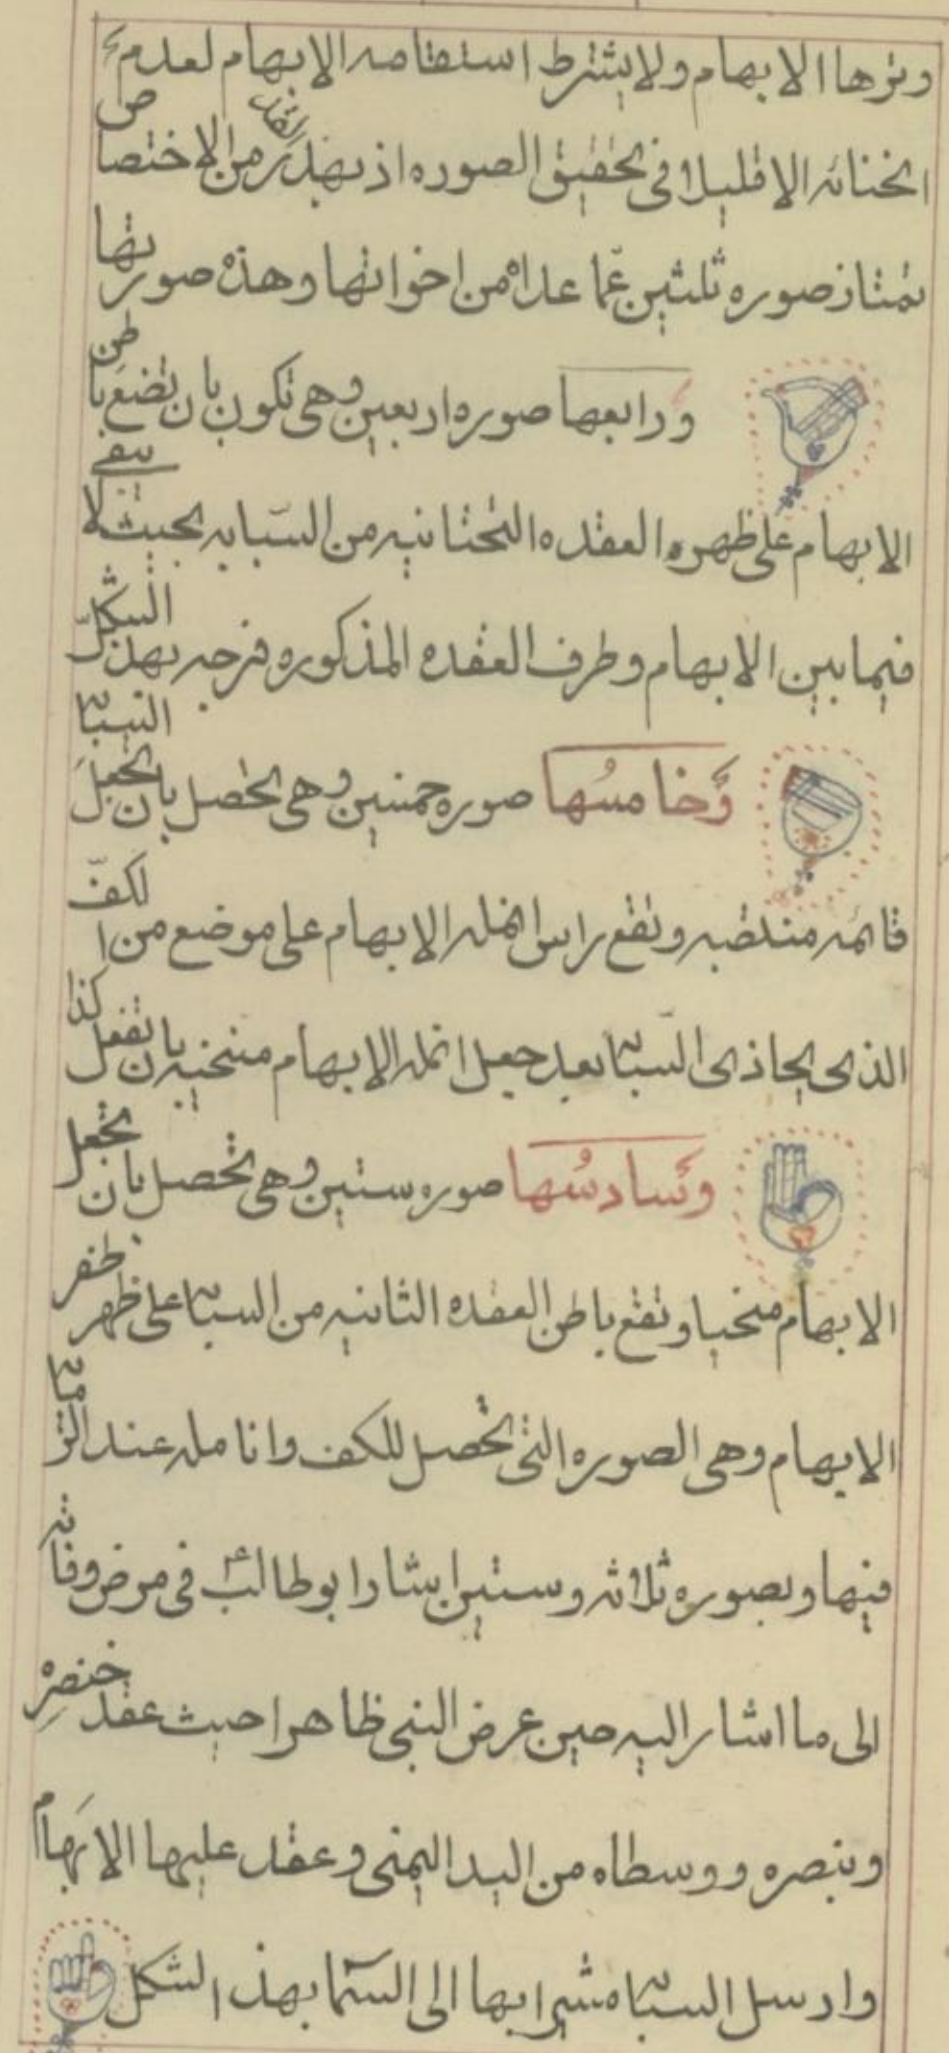 وترها الابهام ولا يشترط استقامه الابهام لعدم
انحنائه الا قليلا فى تحقيق الصوره اذ بهذ القدر من الاختصاص
تمتاز صوره ثلثين عمّا عداه من اخواتها وهذه صورتها
وَرابعها صوره اربعين وهى تكون بان تضع باطن
الابهام على ظهر العقده التحتانيه من السّبابه بحيث لا يبقى
فيما بين الابهام وطرف العقده المذكوره فرجه بهذ الشكل
وَخامسُها صوره خمسين وهى تحصل بان تجعل السّبا
قائمه منتصبه وتقع راس انمله الابهام على موضع من الكفّ
الذى يحاذى السّبا بعد جعل انمله الابهام منحنيه بان تفعل كذا
وَسادسُها صوره ستين وهى تحصل بان تجعل
الابهام منحنيا وتقع باطن العقده الثانيه من السبا على ظهر ظفر
الابهام وهى الصوره التى تحصل للكف وانامله عند
فيها وبصوره ثلاثه وستين اشار ابو طالب فى مرض وفاته
الى ما اشار اليه حين عرض النبى ظاهرا حيث عقد خنصره
وبنصره ووسطاه من اليد اليمنى وعقد عليها الابهام
وارسل السبا مشيرا بها الى السّما بهذ الشكل